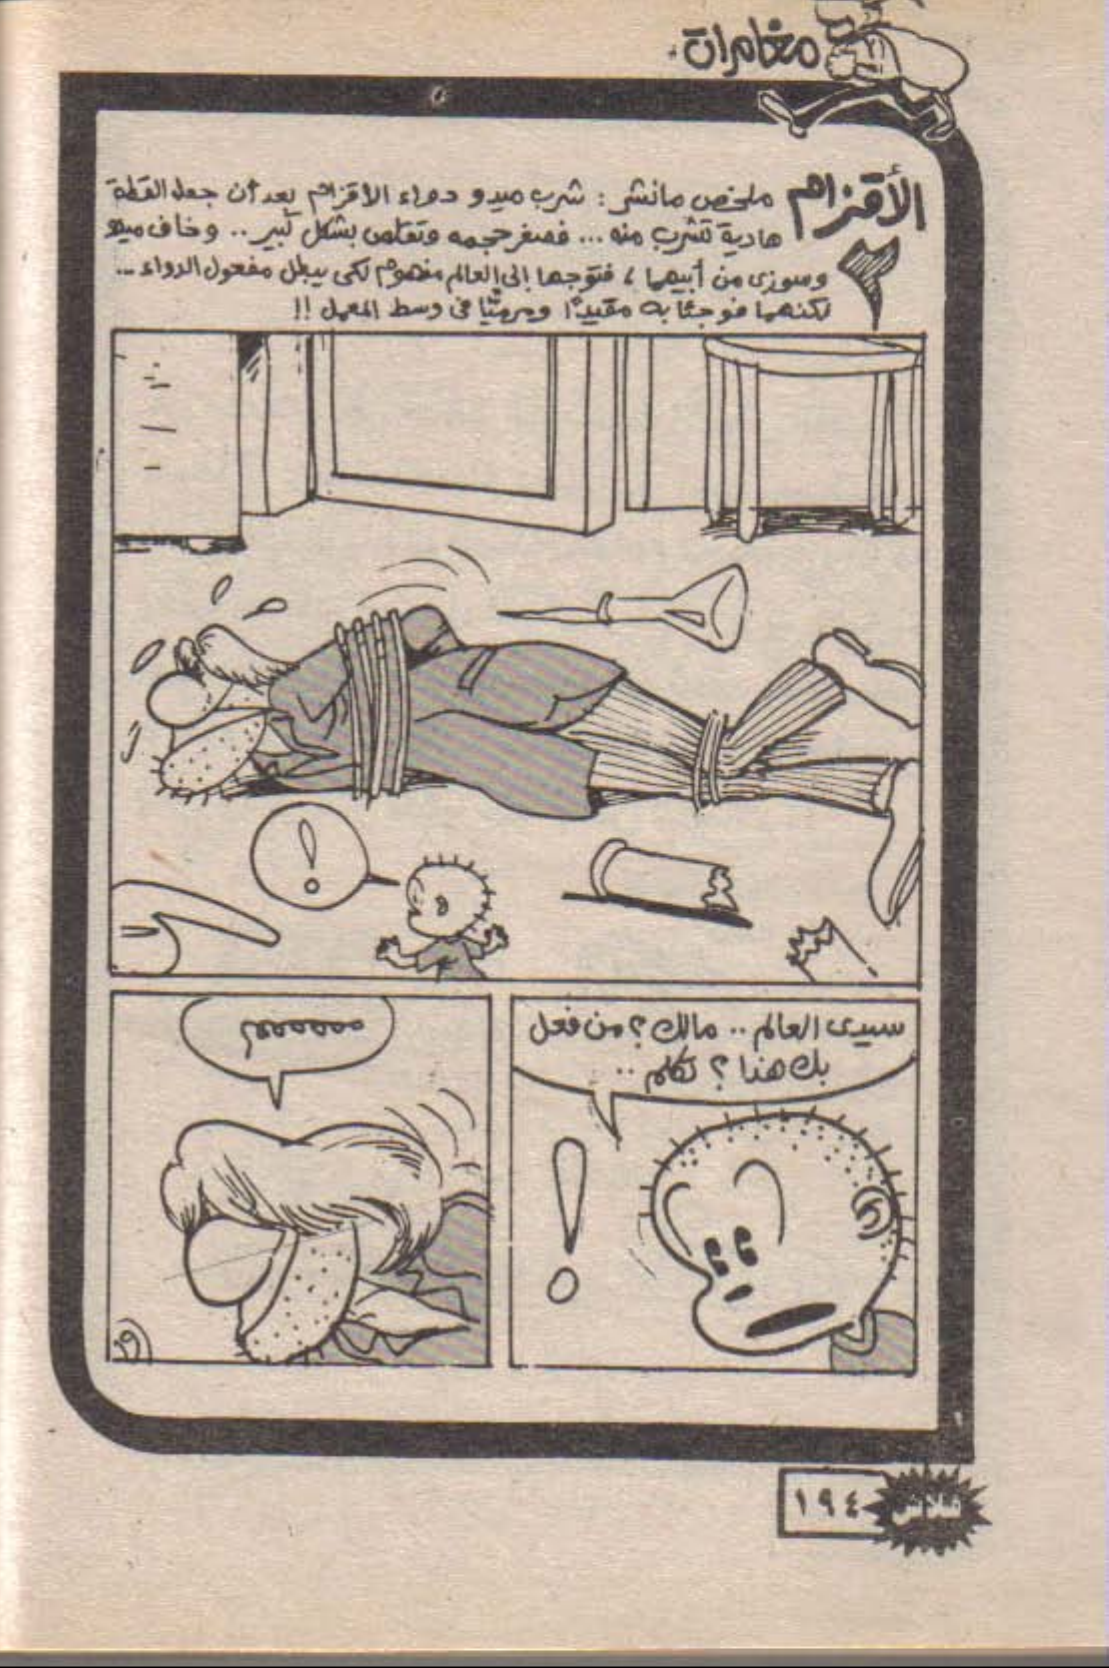 مغامرات
الأقزام
٢
ملخص مانشر : شرب ميدو دواء الأقزام بعد أن جعل القطة
هادية تشرب منه ... فصغر حجمه وتقلص بشكل كبير .. وخاف ميدو
وسوزى من أبيهما ، فتوجها إلى العالم مفهوم لكى يبطل مفعول الدواء ...
لكنهما فوجئا به مقيدًا ومرميًّا فى وسط المعمل !!
!
سيدى العالم .. مالك ؟ من فعل
بك هذا ؟ تكلم ..
!
ممممممم
فلاش
١٩٤